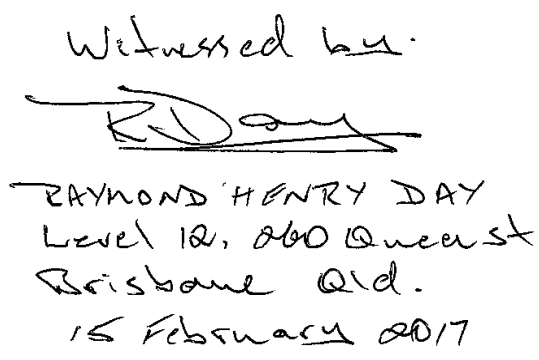 Witnessed by.
R Day
RAYMOND HENRY DAY
Level 12, 260 Queen st
Brisbane Qld.
15 February 2017